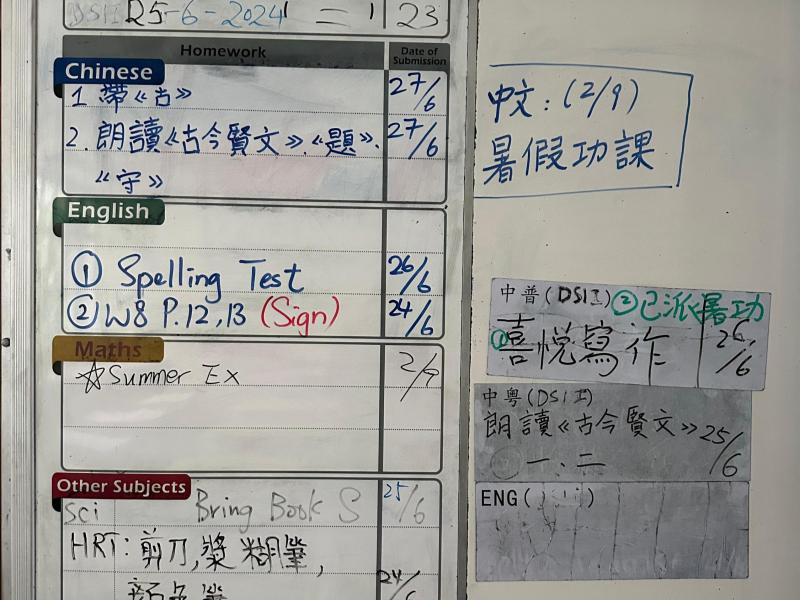 25-6-2024
23
Homework
Date of Submission
Chinese
1 帶《古》 27/6
2. 朗讀《古今賢文》.《題》. 27/6
《守》
English
① Spelling Test 26/6
② WB P.12,13 (Sign) 24/6
Maths
☆Summer Ex 2/9
Other Subjects
Sci Bring Book 5 25/6
HRT: 剪刀,漿糊筆,
顏色筆 24/6
中文:(2/9)
暑假功課
中普(DSII) ②已派暑功
①喜悅寫作 26/6
中粵(DSII)
朗讀《古今賢文》25/6
一、二
ENG( )